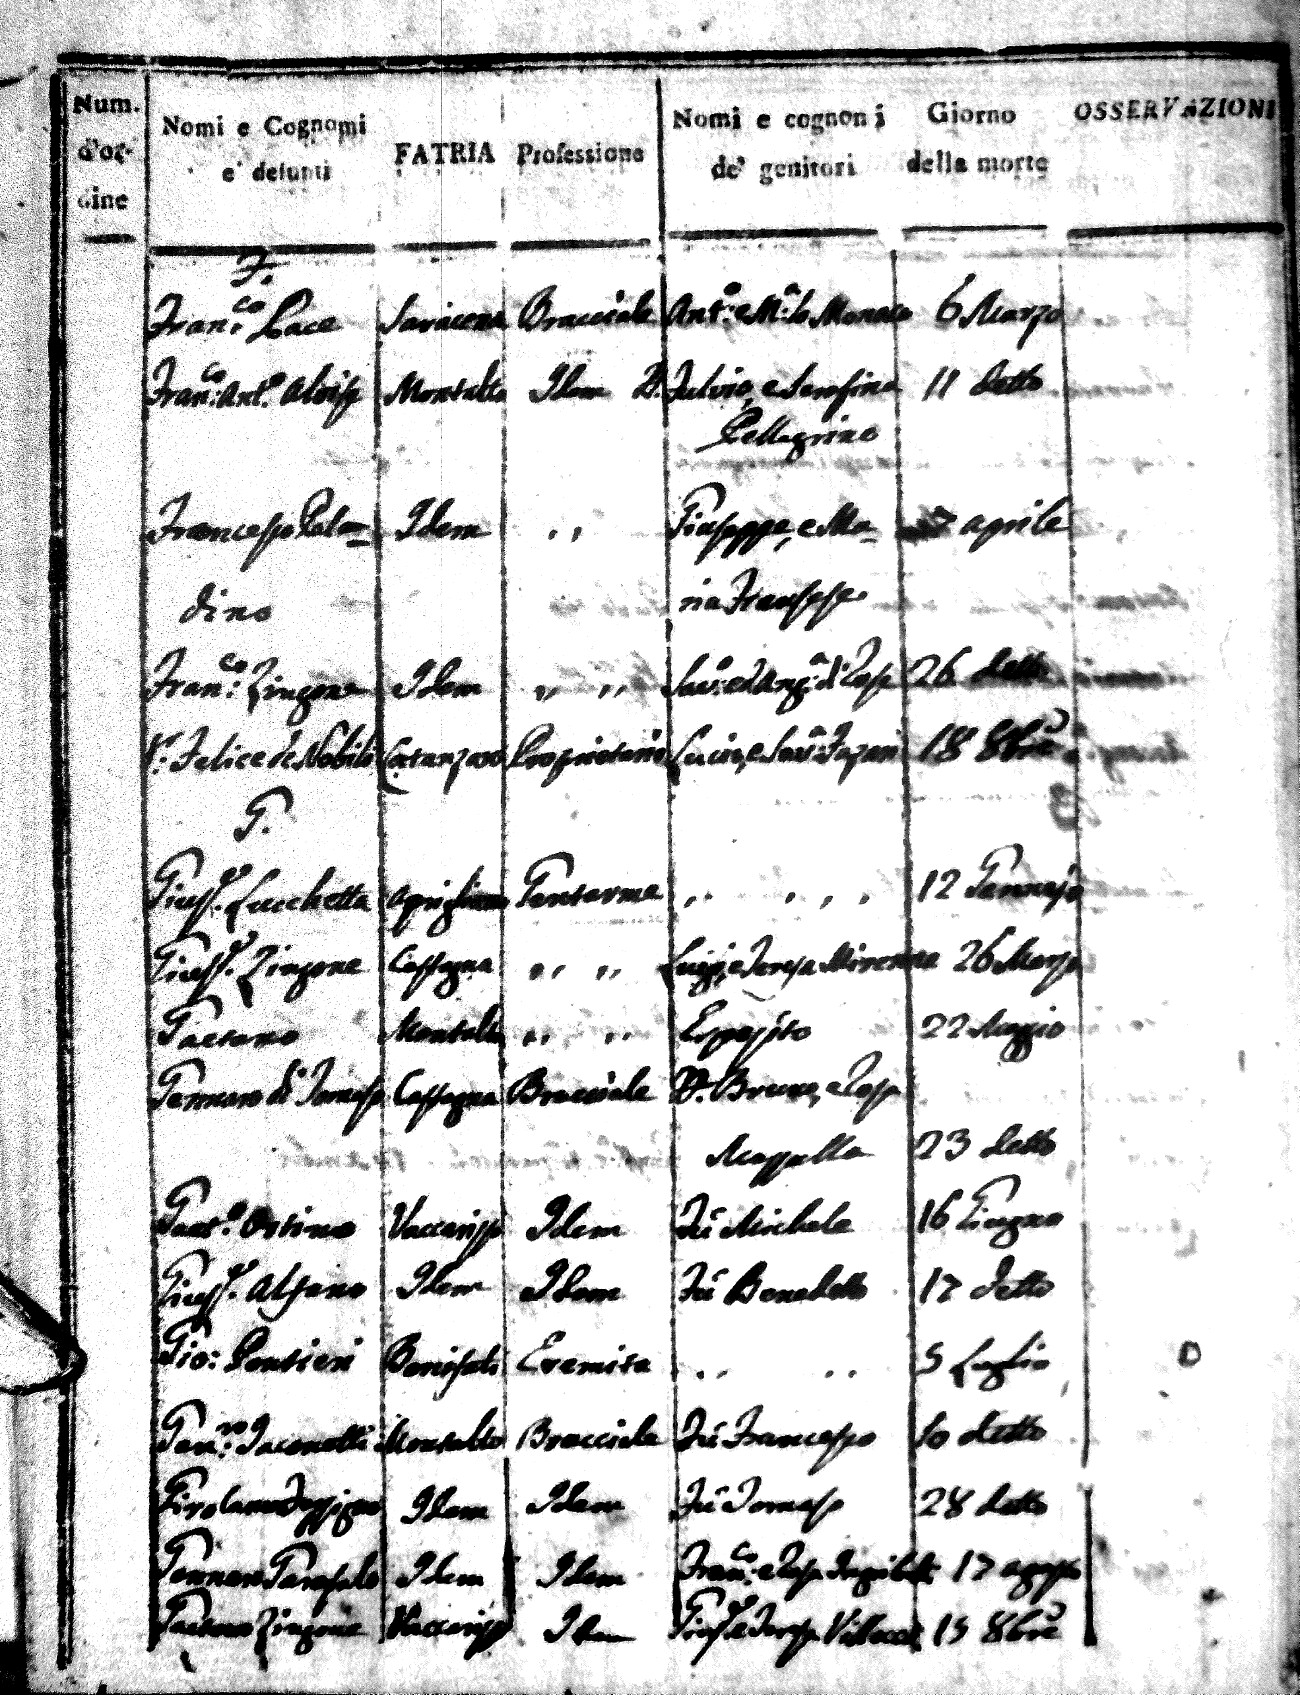 Num. d'or- dine
Nomi e Cognomi e' defunti
PATRIA
Professione
Nomi e cognomi de' genitori
Giorno della morte
OSSERVAZIONI
F.
Fran.co Pace Saracena Bracciale Ant.o e M.a lo Monaco 6 Marzo
Fran.co Ant.o Aloise Montalto Idem D. Fulvio, e Serafina 11 detto
Pellegrino
Francesco Pala= Idem ,, Giuseppe, e Ma= 7 aprile
dino ria Francese
Fran.co Zingone Idem ,, ,, Sav.o ed Ang.a di Rose 26 detto
Felice de Nobili Catanzaro Proprietario Lucio, e 18 8bre
G.
Gius.e Lucchetta Aprigliano Gendarme ,, ,, ,, 12 Gennajo
Gius.e Zingone Cassagna ,, ,, Luigi, e Teresa 26 Marzo
Gaetano Montalto ,, ,, Esposito 22 Maggio
Gennaro di Tomaso Cassagna Bracciale D. Bruno, e Rosa
Acappella 23 detto
Gaet.o Orsino Vaccarizzo Idem Fù Michele 16 Giugno
Gius.e Alfano Idem Idem Fù Benedetto 17 detto
Gio: Pontieri Bonifati Eremita ,, ,, 5 Luglio
Gen.ro Iaconetti Montalto Bracciale Fù Francesco 10 detto
Girolamo Idem Idem Fù Tomaso 28 detto
Gennaro Garofalo Idem Idem Fran.co e Rosa 17 agosto
Gaetano Zingone Vaccarizzo Idem Gius.e e Teresa 15 8bre